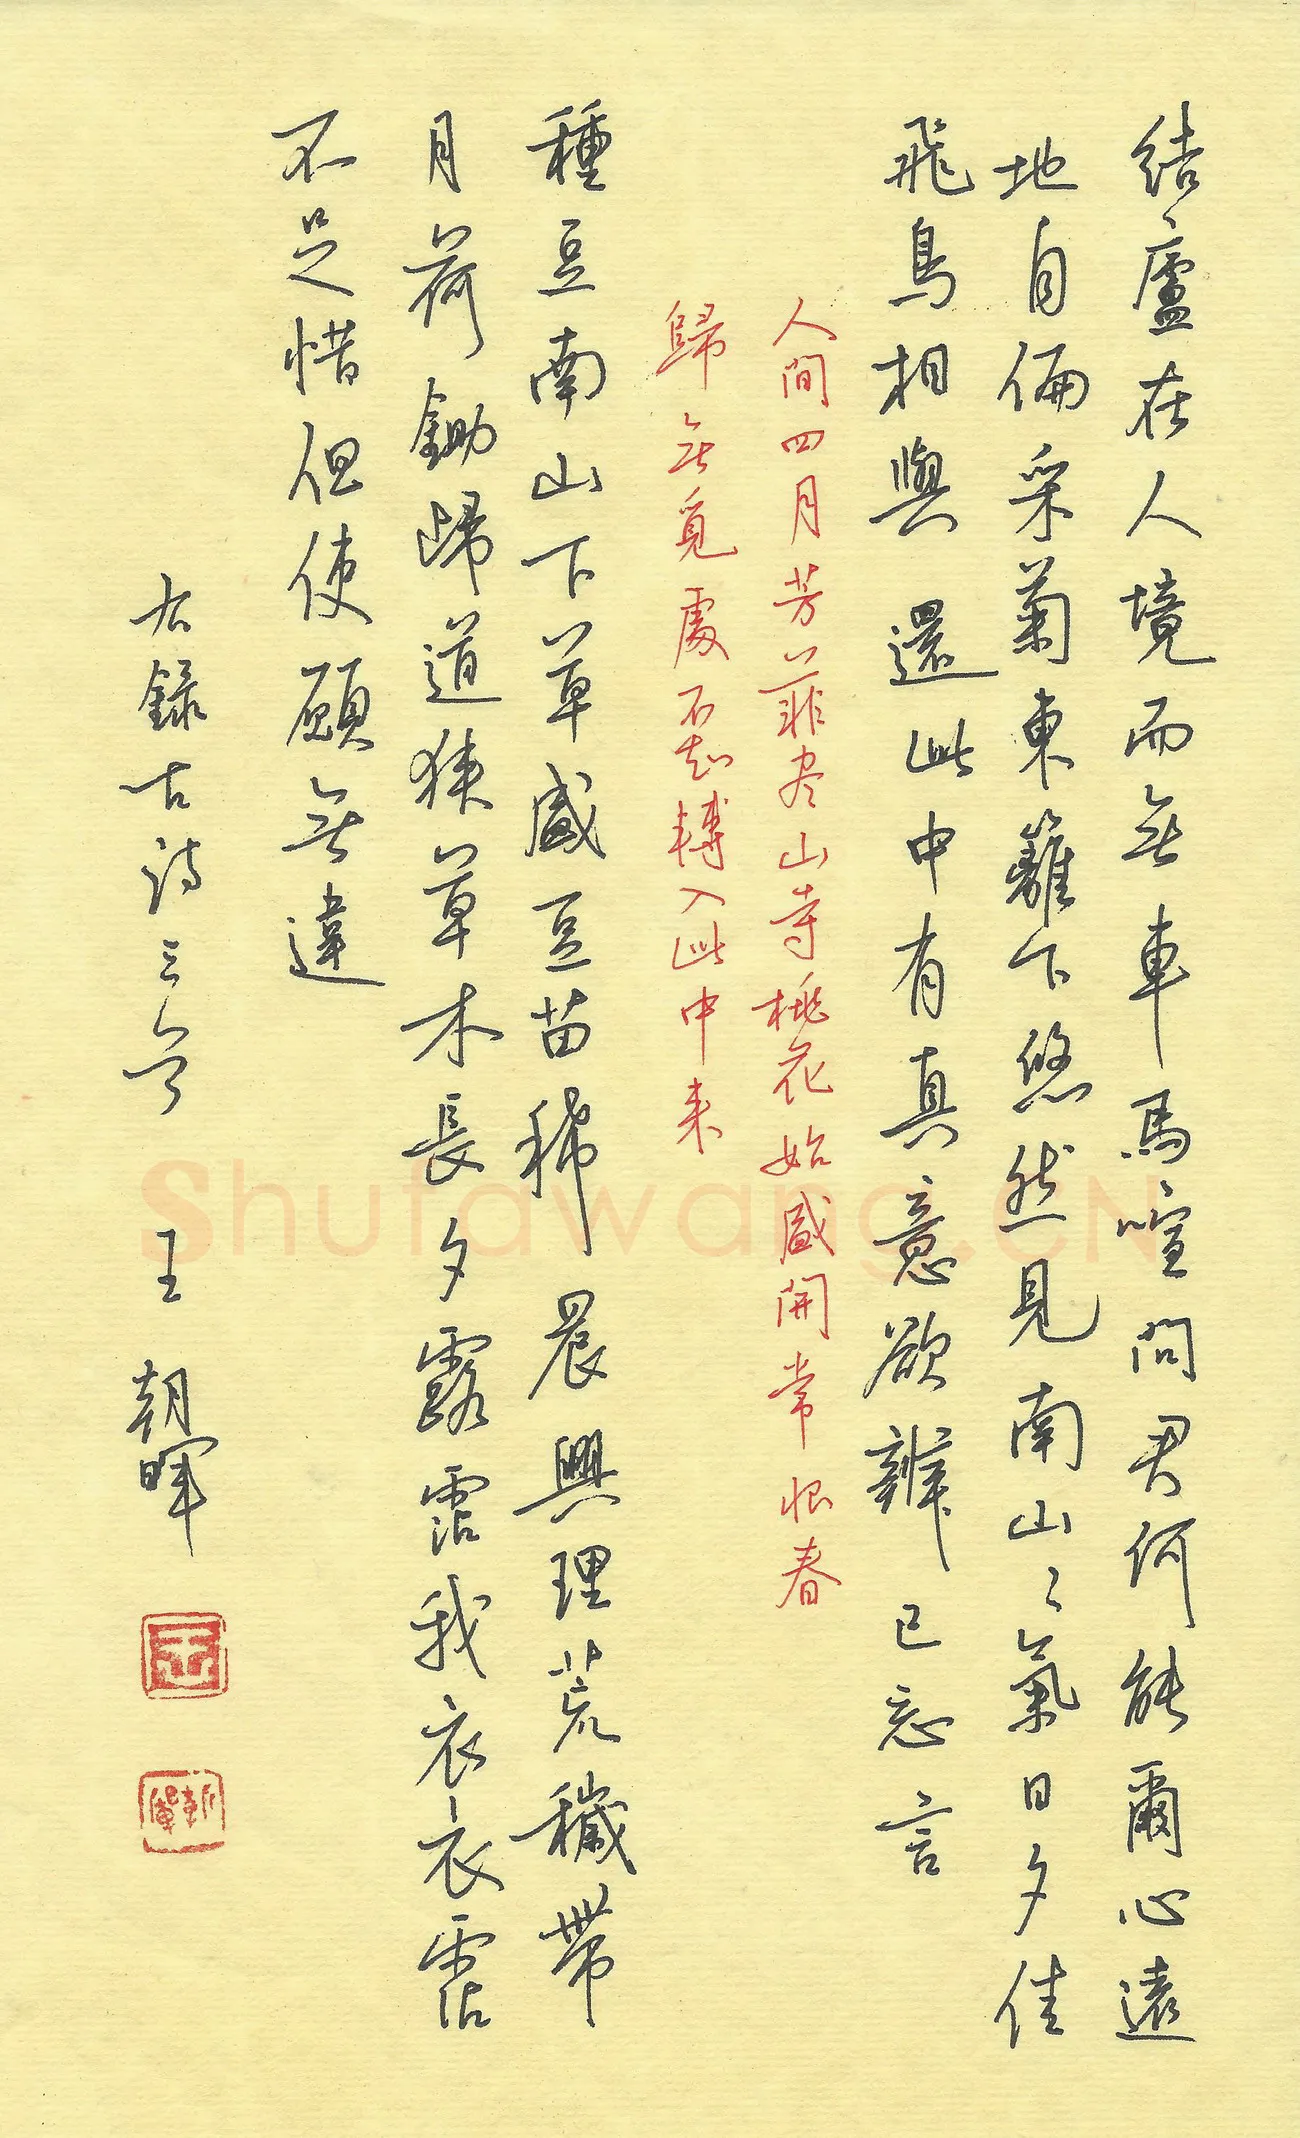 結廬在人境而無車馬喧問君何能爾心遠
地自偏采菊東籬下悠然見南山山氣日夕佳
飛鳥相與還此中有真意欲辨已忘言
人間四月芳菲尽山寺桃花始盛開常恨春
歸無覓處不知轉入此中来
種豆南山下草盛豆苗稀晨興理荒穢帶
月荷鋤歸道狹草木長夕露霑我衣衣霑
不足惜但使願無違
右錄古詩三首 王朝暉
Shufawang.cn